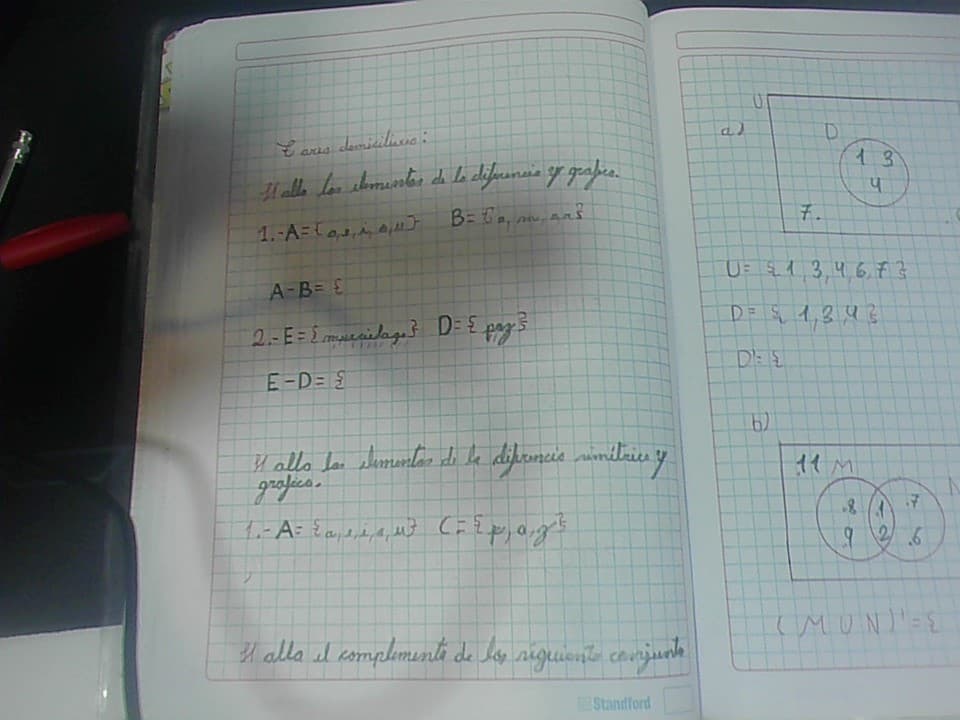 Tarea domiciliaria:
Halla los elementos de la diferencia y grafica.
1.-A={a,e,i,o,u} B={a, m
A-B= {
2.-E={murcielago} D={paz}
E-D= {
Halla los elementos de la diferencia simétrica y
grafica.
1.-A= {a,e,i,o,u} C={p,a,z}
Halla el complemento de los siguiente conjunto
Standford
a)
U
D
1 3
4
7.
U= {1,3,4,6,7}
D= {1,3,4}
D'= {
b)
.11 M
.8 .1 .7
9 2 .6
(MUN)'={